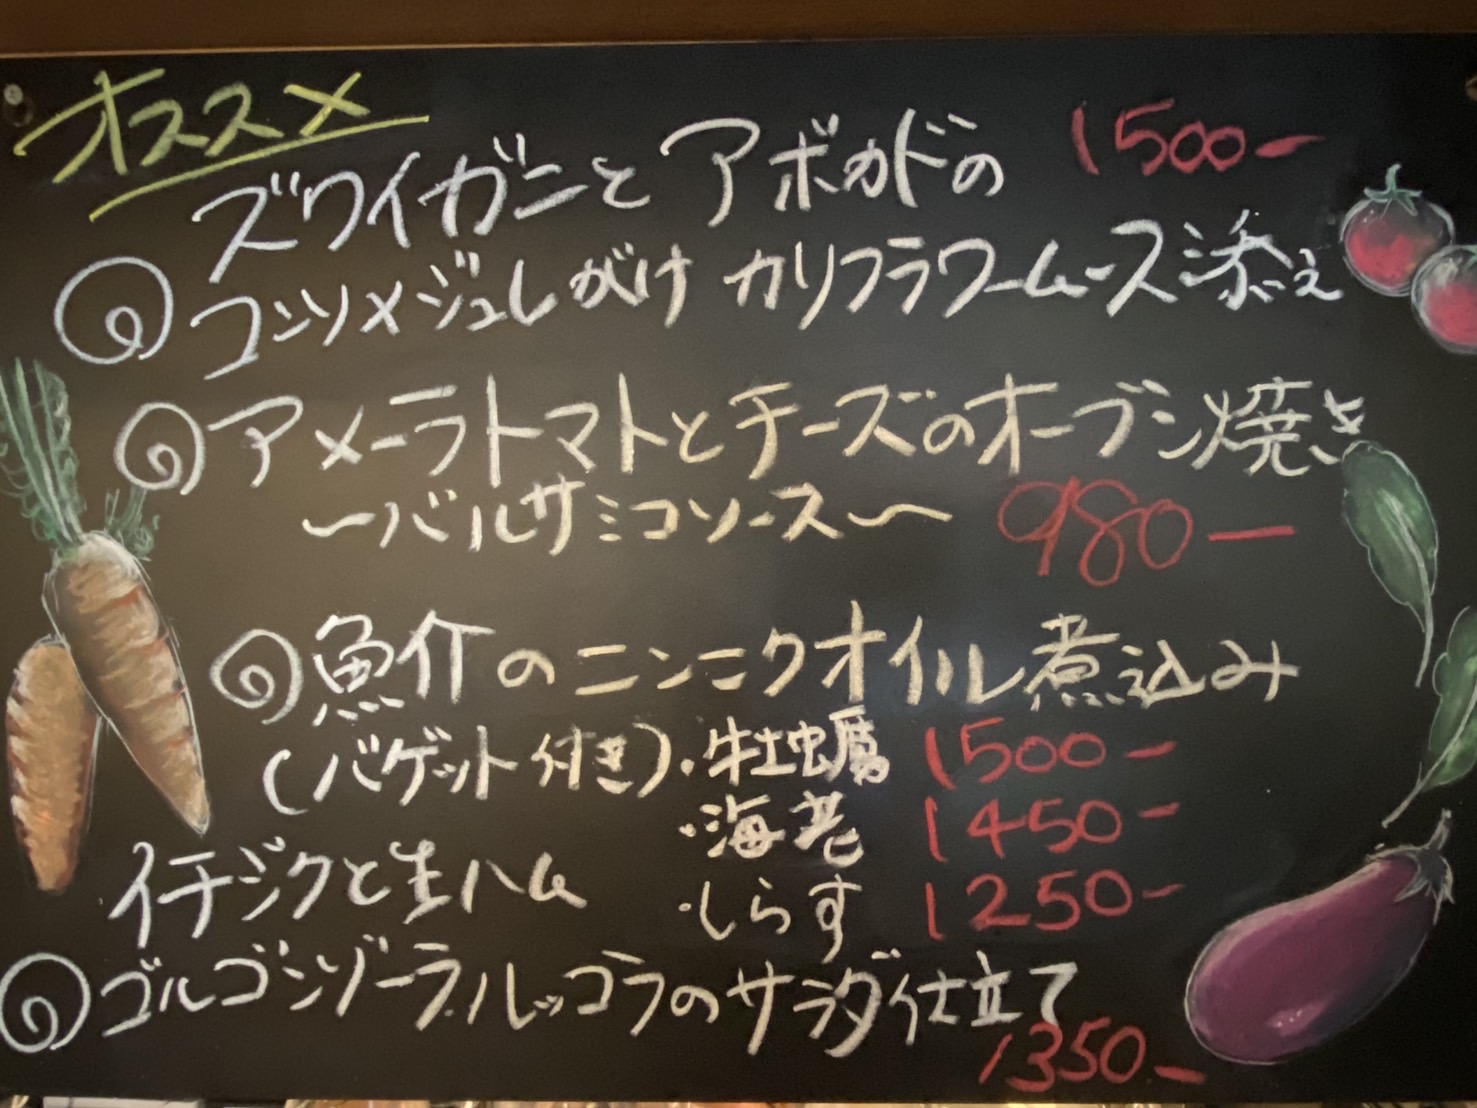 オススメ
ズワイガニとアボカドの 1500-
コンソメジュレがけ カリフラワームース添え
アメーラトマトとチーズのオーブン焼き
〜バルサミコソース〜 980-
魚介のニンニクオイル煮込み
(バゲット付き)・牡蠣 1500-
・海老 1450-
・しらす 1250-
イチジクと生ハム
ゴルゴンゾーラルッコラのサラダ仕立て
1350-